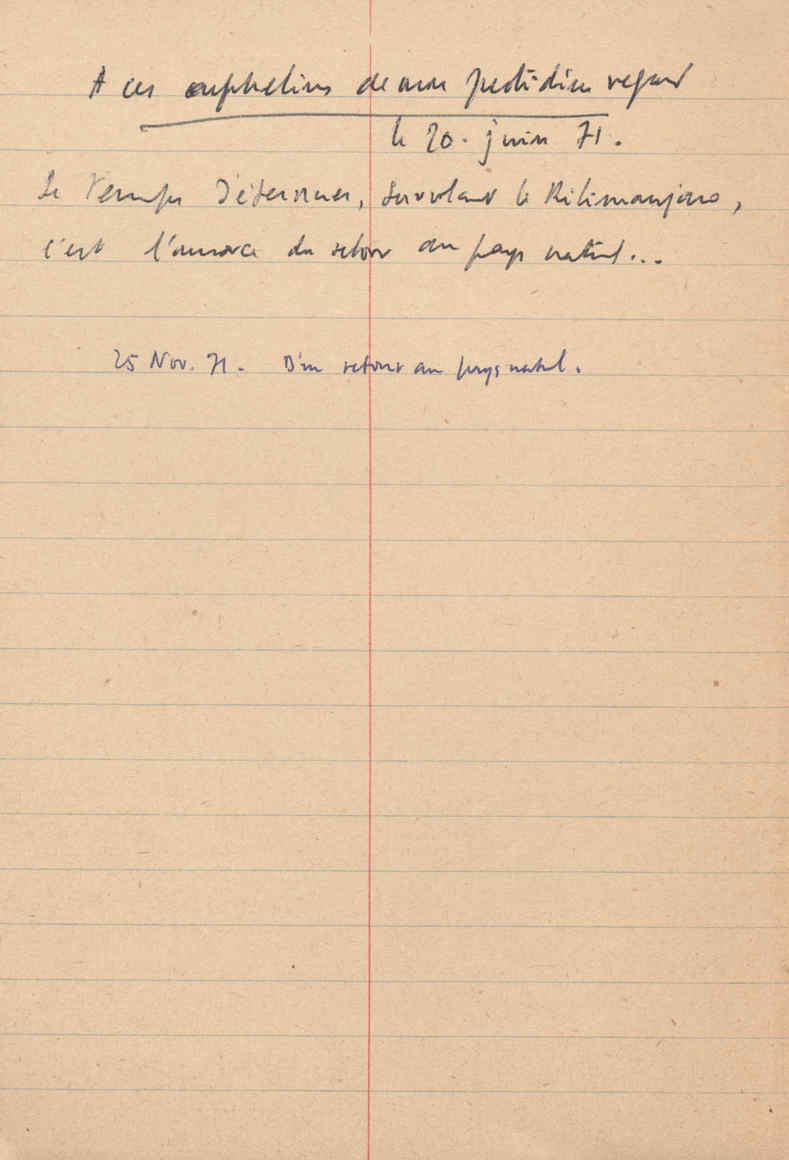 A ces orphelins de mon quotidien regard
le 20. juin 71.
Le temps d'éternuer, survolant le Kilimanjaro,
c'est l'amorce du retour au pays natal...
25 Nov. 71. D'un retour au pays natal.